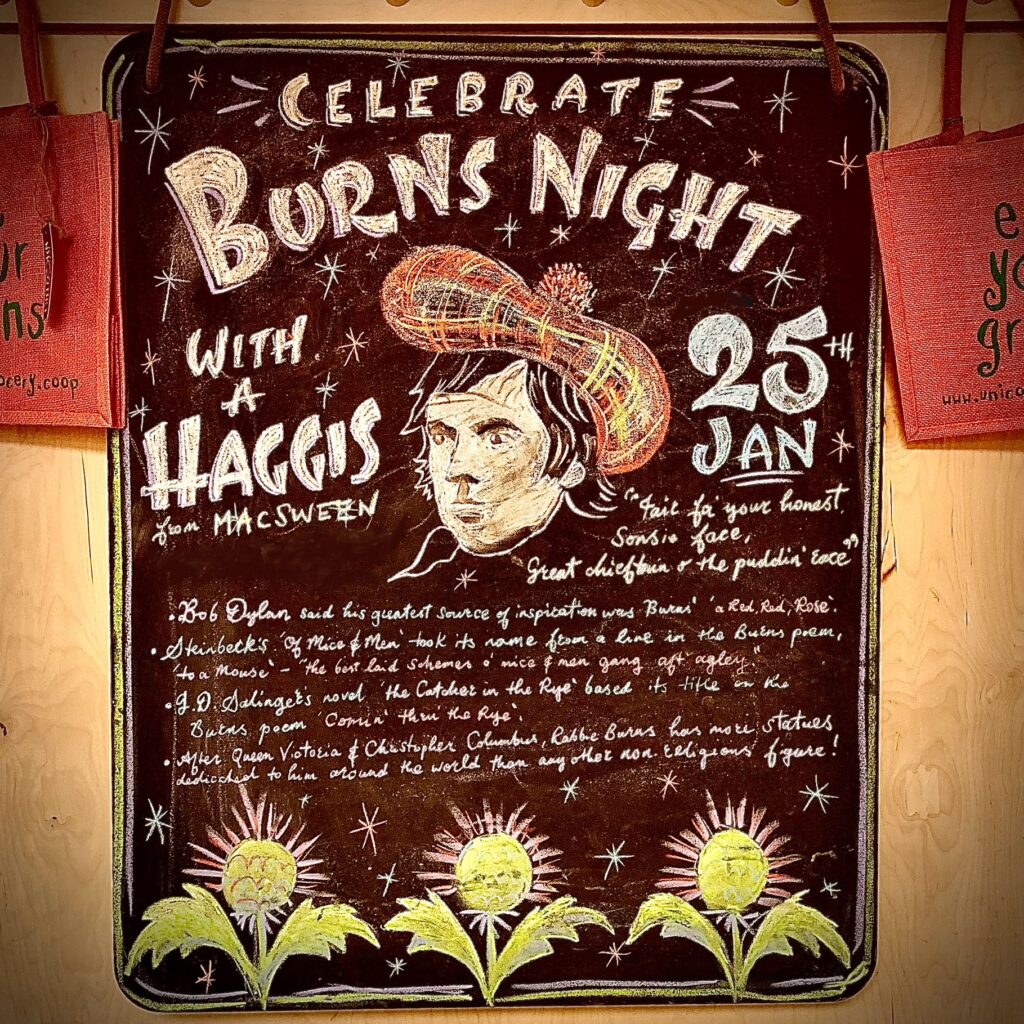 CELEBRATE
BURNS NIGHT
WITH
A
HAGGIS
from MACSWEEN
25TH
JAN
"Fair fa' your honest
Sonsie face,
Great chieftain o the puddin' race"
• Bob Dylan said his greatest source of inspiration was Burns' 'a Red, Red, Rose'.
• Steinbeck's 'Of Mice & Men' took its name from a line in the Burns poem,
'to a Mouse' – "the best laid schemes o' mice & men gang aft agley"
• J.D. Salinger's novel 'the Catcher in the Rye' based its title on the
Burns poem 'Comin' thru the Rye'.
• After Queen Victoria & Christopher Columbus, Rabbie Burns has more statues
dedicated to him around the world than any other non religious figure!
ur
ns
ocery.coop
e
yo
gr
www.unico